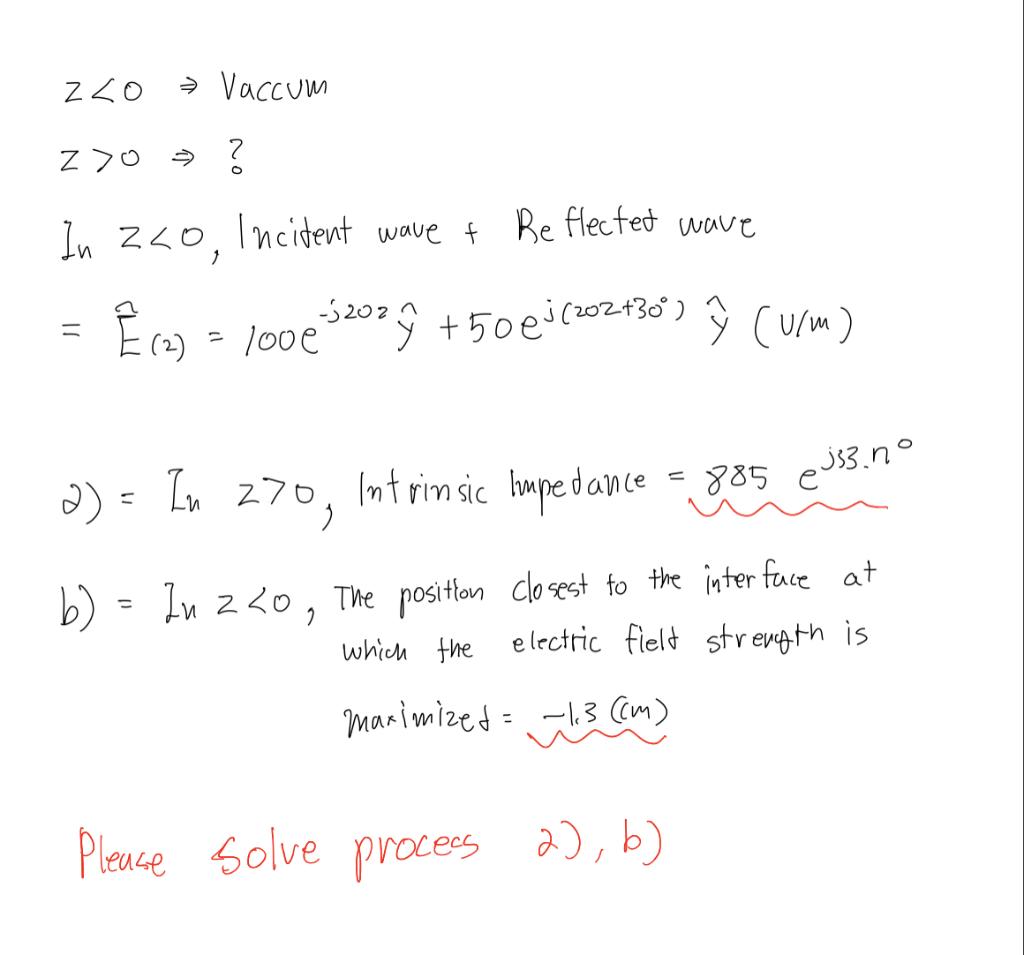 z<0 ⇒ Vaccum
z>0 ⇒ ?
In z<0, Incident wave + Reflected wave
= Ê(z) = 100e^-j20z ŷ + 50e^j(20z+30°) ŷ (V/m)
a) = In z>0, Intrinsic Impedance = 885 e^j33.n°
b) = In z<0, The position closest to the interface at
which the electric field strength is
maximized = -1.3 (cm)
Please solve process a), b)